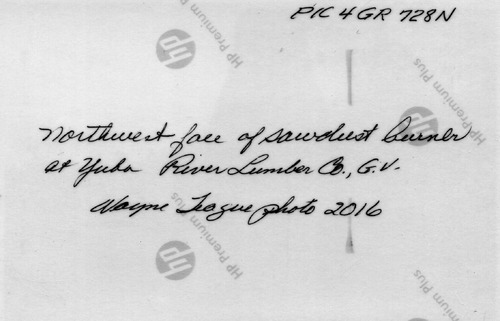 PIC 4 GR 728N
hp HP Premium Plus
HP Premium Plus
Northwest face of sawdust burner
at Yuba River Lumber Co., G.V.
Wayne Teague photo 2016
hp HP Premium Plus
HP Premium Plus